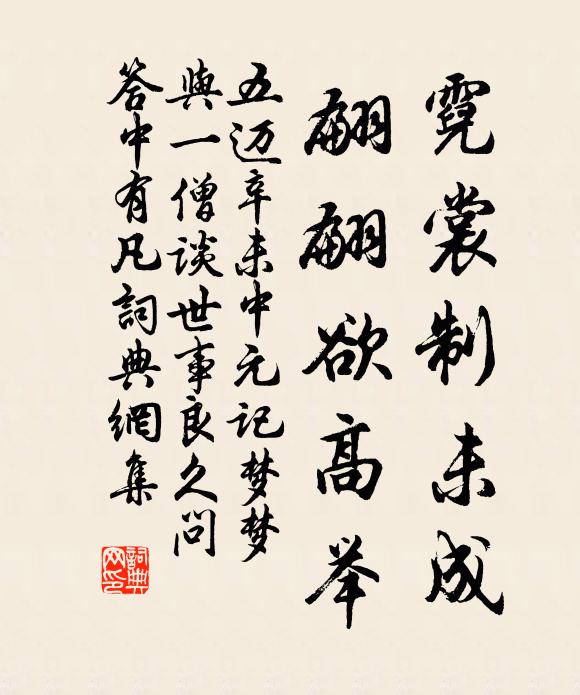 霓裳制未成
翩翩欲高举
五迈辛未中元记梦梦
與一僧谈世事良久问
答中有凡詞典網集
詞典网印